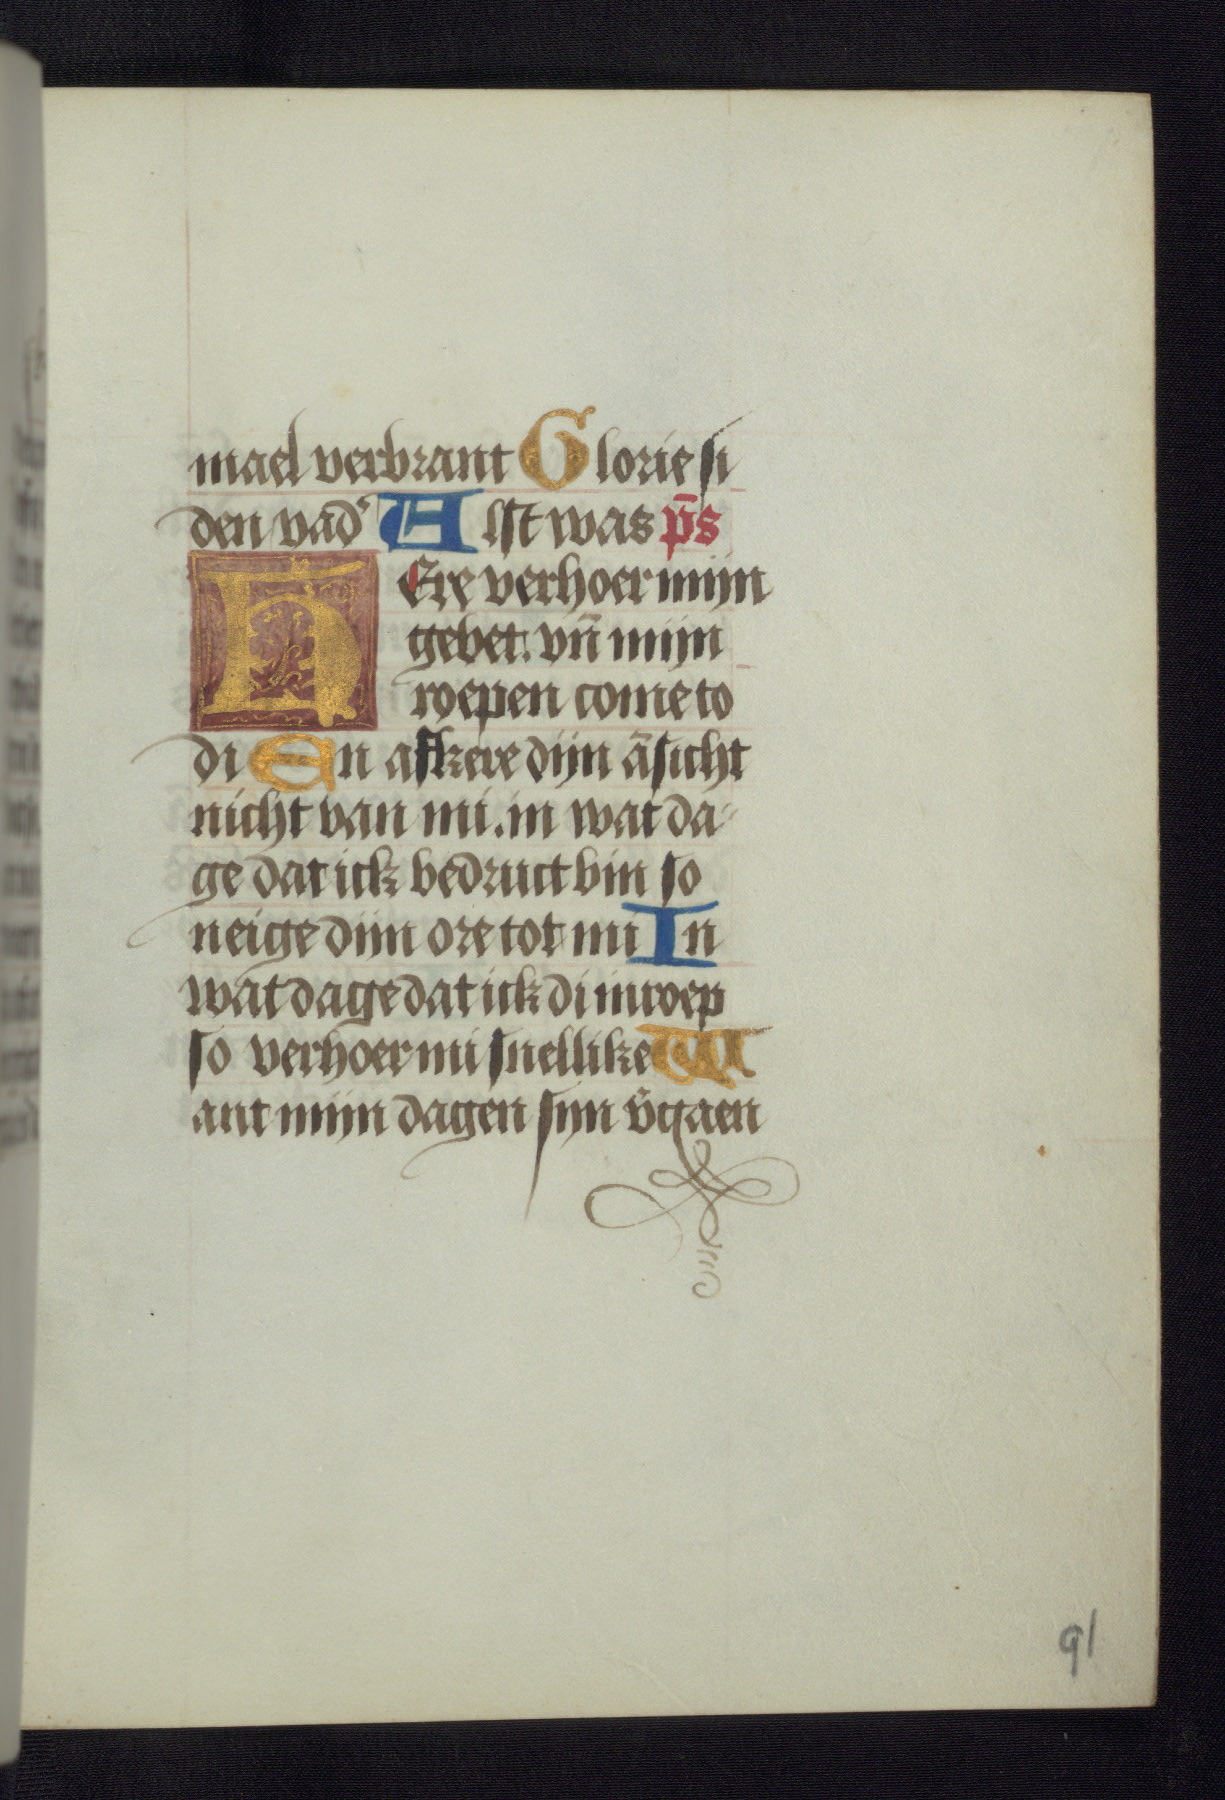 mael verbrant Glorie si
den vad' Alst was p̄s
HEre verhoer mijn
gebet. vn̄ mijn
roepen come to
di En afkere dijn āsicht
nicht van mi. in wat da
ge dat ick bedruct bin so
neige dijn ore tot mi In
wat dage dat ick di inroep
so verhoer mi snellike W
ant mijn dagen sijn v̄gaen
91